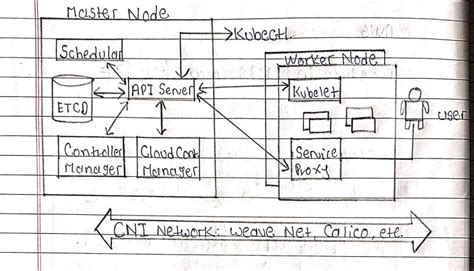 Master Node
Kubectl
Schedular
Worker Node
API Server
Kubelet
ETCD
user
Controller
Manager
Cloud Cont.
Manager
Service
Proxy
CNI Network: Weave Net, Calico, etc.